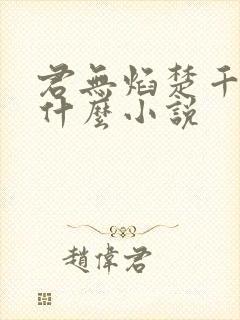 君無焰楚千
什麼小說
趙偉君